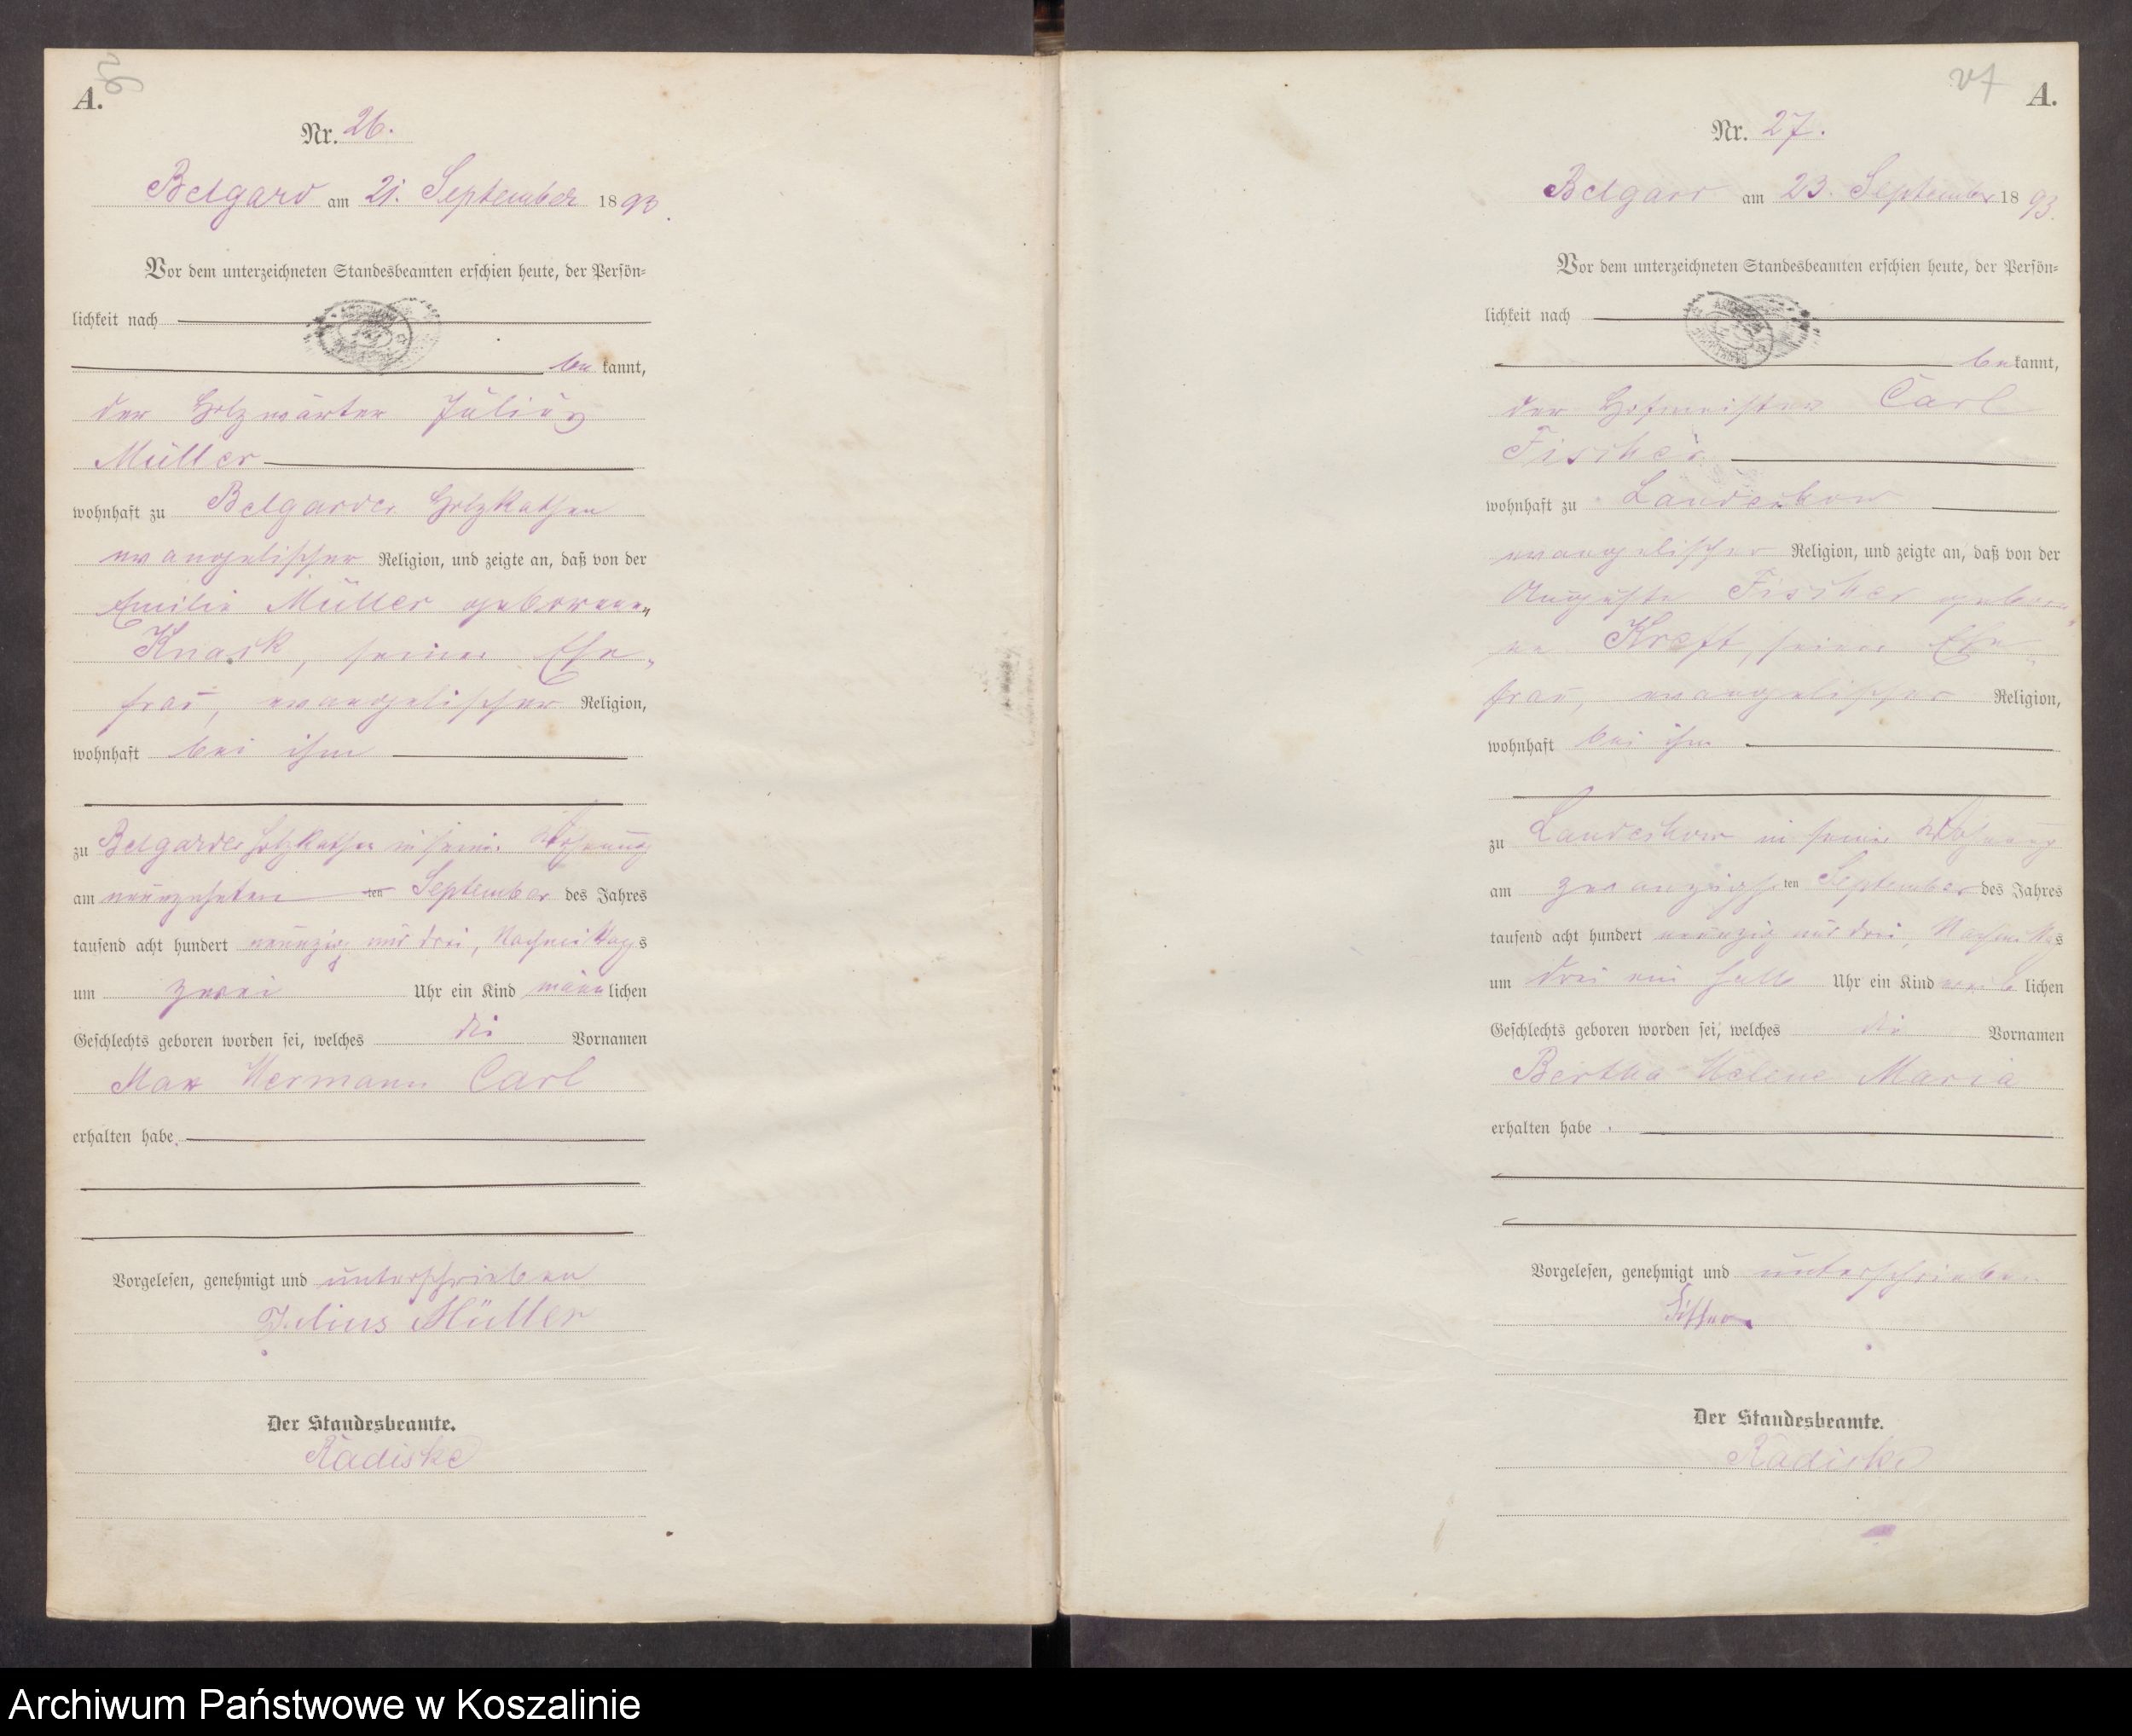 A.
Nr. 26.
Belgard am 21. September 1893.
Vor dem unterzeichneten Standesbeamten erschien heute, der Persön-
lichkeit nach
be kannt,
der Holzwärter Julius
Müller
wohnhaft zu Belgarder Holzkathen
evangelischer Religion, und zeigte an, daß von der
Emilie Müller geborenen
Knask, seiner Ehe-
frau, evangelischer Religion,
wohnhaft bei ihm
zu Belgarder Holzkathen in seiner Wohnung
am neunzehnten ten September des Jahres
tausend acht hundert neunzig und drei, Nachmittags
um zwei Uhr ein Kind männlichen
Geschlechts geboren worden sei, welches die Vornamen
Max Hermann Carl
erhalten habe.
Vorgelesen, genehmigt und unterschrieben
Julius Müller
Der Standesbeamte.
Radiske
27 A.
Nr. 27.
Belgard am 23. September 1893.
Vor dem unterzeichneten Standesbeamten erschien heute, der Persön-
lichkeit nach
bekannt,
der Hofmeister Carl
Fischer
wohnhaft zu Landechow
evangelischer Religion, und zeigte an, daß von der
Auguste Fischer gebore-
ne Kreft, seiner Ehe-
frau, evangelischer Religion,
wohnhaft bei ihm
zu Landechow in seiner Wohnung
am zwanzigsten September des Jahres
tausend acht hundert neunzig und drei, Nachmittags
um drei ein halb Uhr ein Kind weiblichen
Geschlechts geboren worden sei, welches die Vornamen
Bertha Helene Maria
erhalten habe.
Vorgelesen, genehmigt und unterschrieben
Der Standesbeamte.
Radiske
Archiwum Państwowe w Koszalinie